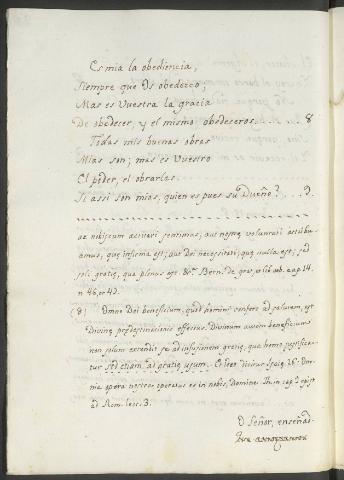 Es mia la obediencia,
Siempre que Os obedezco;
Mas es Vuestra la gracia
De obedecer, y el mismo obedeceros. . . . 8
Todas mis buenas obras
Mias son; mas es Vuestro
El poder, el obrarlas.
Si assi son mias, quien es pues su Dueño? . . . 9.
ac nobiscum activari sentimus, aut nostrę voluntati attribu
amus, quę infirma est; aut Dei necessitati, quę nulla est; sed
soli gratię, qua plenus est. Bern. De grat. et lib. arb. cap. 14.
n. 48, et 49.
(8) Omne Dei beneficium, quod homini confert ad salutem, est
Divinę prędestinationis effectus. Divinum autem beneficium
non solum extendit se ad infusionem gratię, qua homo justifica-
tur sed etiam ad gratię usum.
omnia opera nostra operatus es in nobis, Domine. Th. in cap. epist.
ad Rom. lect. 3.
O Señor, enseñad-